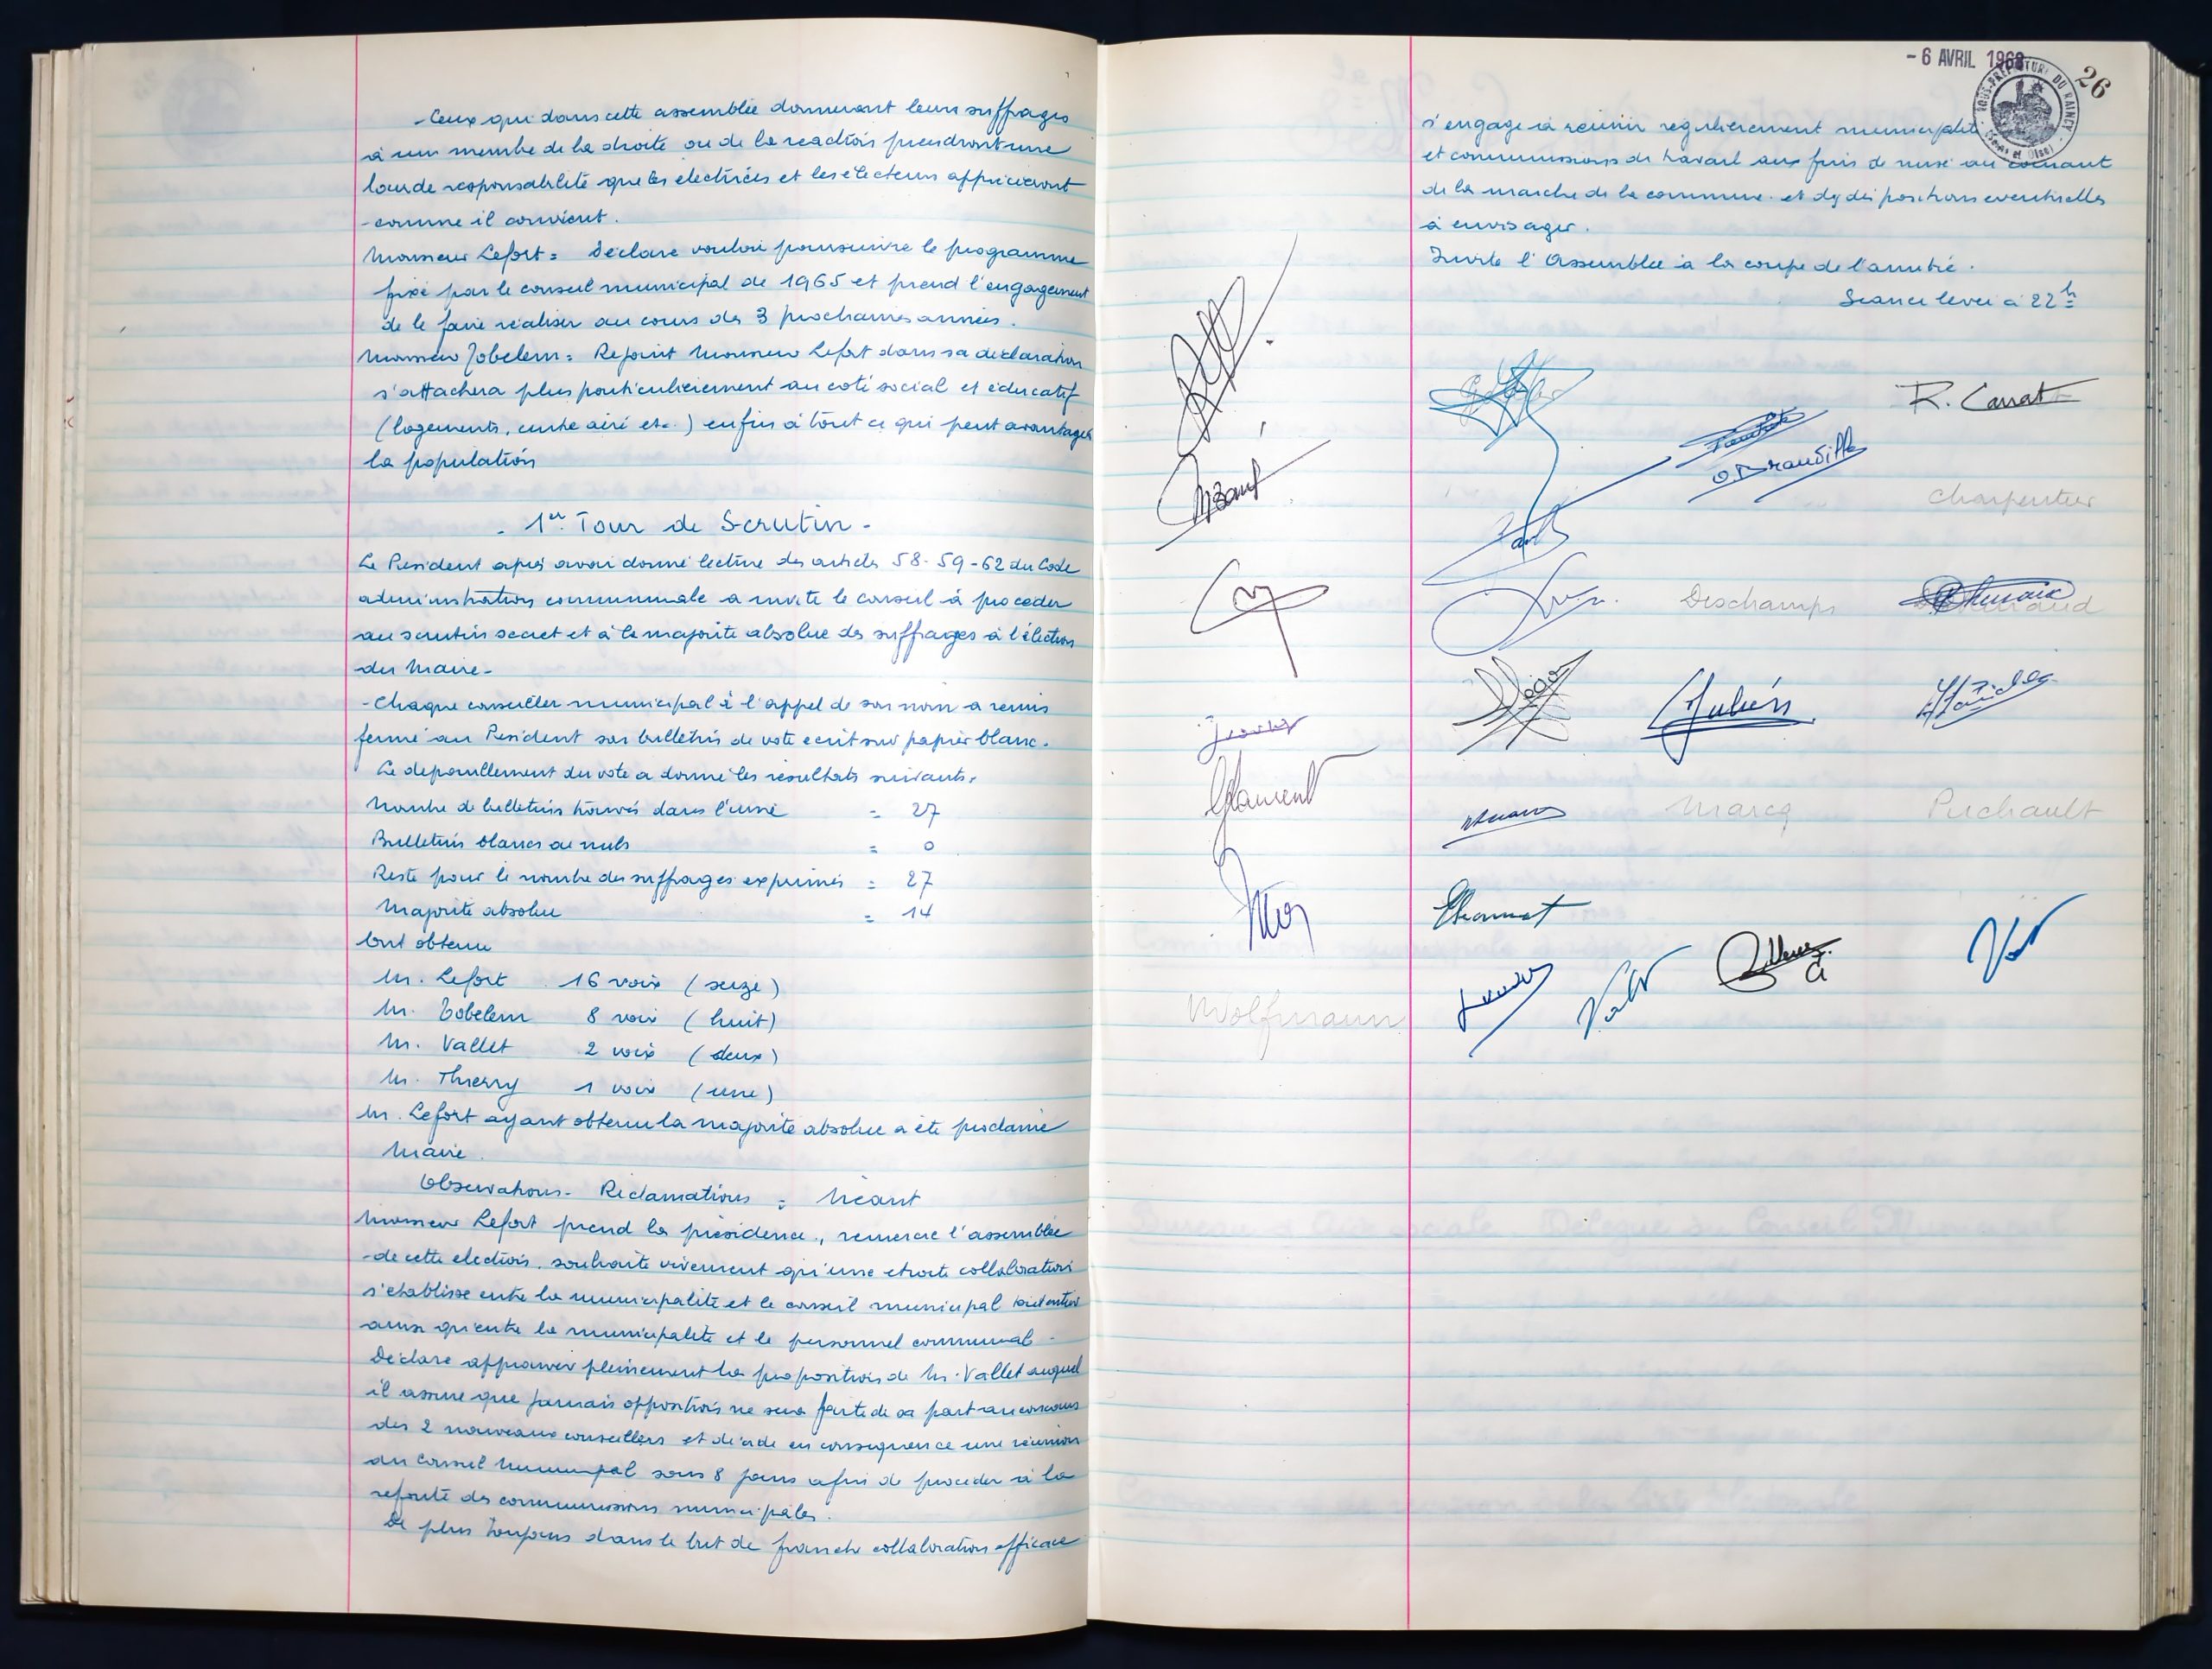 - Ceux qui dans cette assemblée donneront leurs suffrages
à un membre de la droite ou de la reaction prendront une
lourde responsabilité que les electrices et les électeurs apprécieront
comme il convient.
Monsieur Lefort = Déclare vouloir poursuivre le programme
fixé par le conseil municipal de 1965 et prend l'engagement
de le faire réaliser au cours des 3 prochaines années.
Monsieur Zobelem = Rejoint Monsieur Lefort dans sa déclaration
s'attachera plus particulièrement au coté social et éducatif
(logements, centre aéré etc.) enfin à tout ce qui peut avantager
la population
- 1er Tour de Scrutin -
Le Président après avoir donné lecture des articles 58-59-62 du Code
administration communale a invité le conseil à procéder
au scrutin secret et à la majorité absolue des suffrages à l'élection
du Maire -
- Chaque conseiller municipal à l'appel de son nom a remis
fermé au Président son bulletin de vote écrit sur papier blanc.
Le depouillement du vote a donné les résultats suivants.
Nombre de bulletins trouvés dans l'urne = 27
Bulletins blancs ou nuls = 0
Reste pour le nombre des suffrages exprimés = 27
Majorité absolue = 14
Ont obtenu
M. Lefort 16 voix (seize)
M. Zobelem 8 voix (huit)
M. Vallet 2 voix (deux)
M. Thierry 1 voix (une)
M. Lefort ayant obtenu la majorité absolue a été proclamé
Maire.
Observations - Réclamations = Néant
Monsieur Lefort prend la présidence, remercie l'assemblée
de cette election, souhaite vivement qu'une etroite collaboration
s'établisse entre la municipalité et le conseil municipal tout entier
ainsi qu'entre la municipalité et le personnel communal -
Déclare approuver pleinement la proposition de M. Vallet auquel
il assure que jamais opposition ne sera faite de sa part au concours
des 2 nouveaux conseillers et décide en conséquence une réunion
du Conseil Municipal sous 8 jours afin de procéder à la
refonte des commissions municipales.
De plus toujours dans le but de franche collaboration efficace
- 6 AVRIL 1968
SOUS-PRÉFECTURE DU RAINCY
(Seine et Oise)
26
s'engage à réunir régulièrement municipalité
et commissions de travail aux fins de mise au courant
de la marche de la commune et des dispositions eventuelles
à envisager.
Invite l'Assemblée à la coupe de l'amitié.
Séance levée à 22h
R. Carrat
Charpentier
Deschamps
Julien
Laurent
Marcq
Puchault
Wolfmann